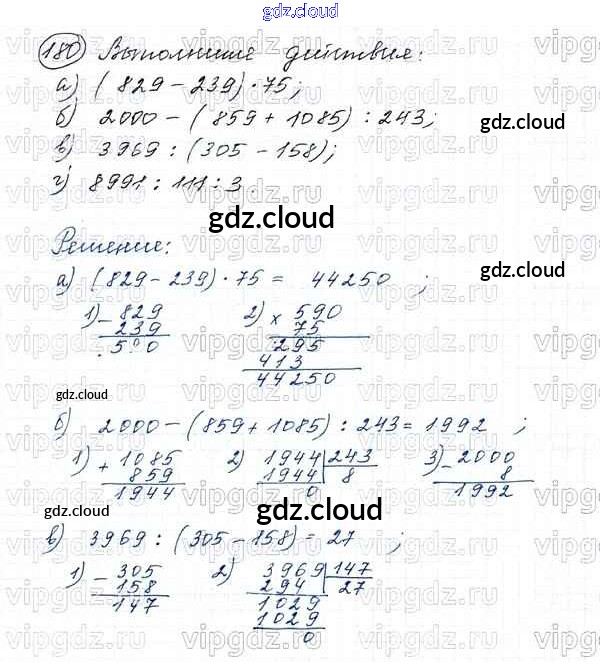 gdz.cloud
180 Выполните действия:
а) (829 - 239) · 75;
б) 2000 - (859 + 1085) : 243;
gdz.cloud
в) 3969 : (305 - 158);
г) 8991 : 111 : 3.
gdz.cloud
Решение:
gdz.cloud
а) (829 - 239) · 75 = 44250 ;
1) - 829 2) × 590
239 75
590 295
413
44250
gdz.cloud
gdz.cloud
б) 2000 - (859 + 1085) : 243 = 1992 ;
1) + 1085 2) 1944 243 3) - 2000
859 1944 8 8
1944 0 1992
gdz.cloud
gdz.cloud
в) 3969 : (305 - 158) = 27 ;
1) - 305 2) 3969 147
158 294 27
147 1029
1029
0
vipgdz.ru